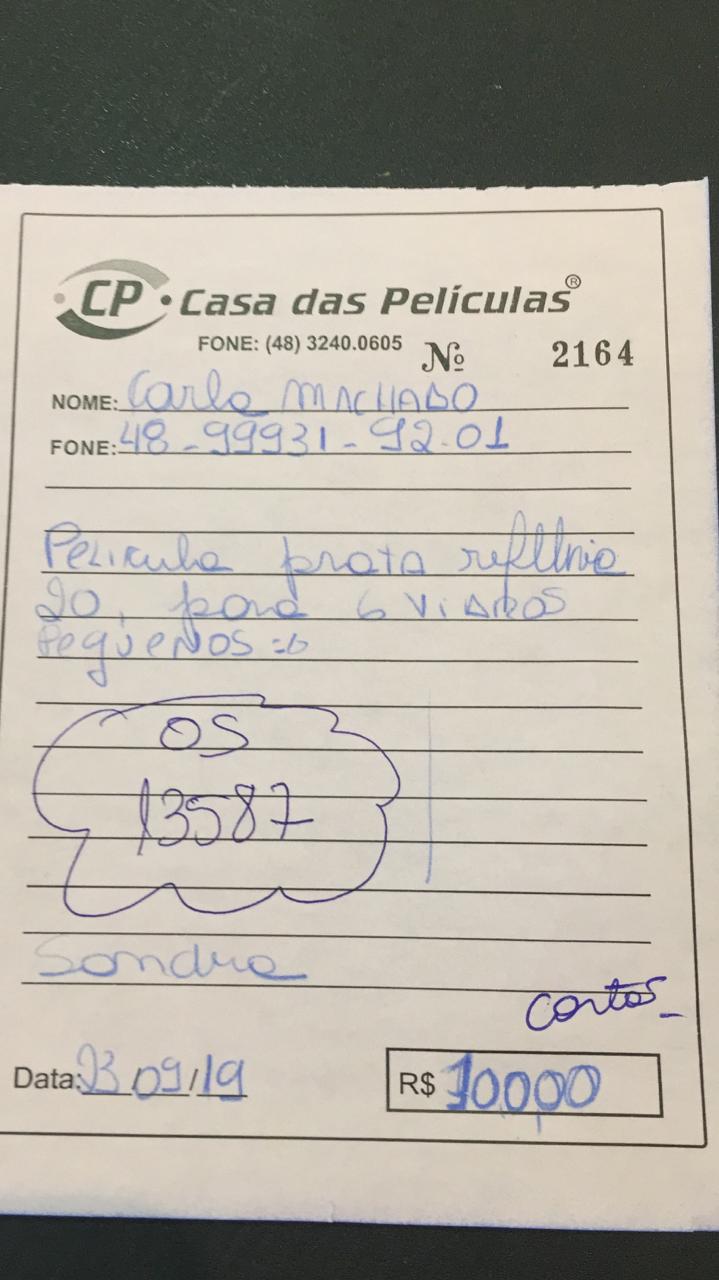 CP · Casa das Películas®
FONE: (48) 3240.0605 Nº 2164
NOME: Carla MACHADO
FONE: 48-99931-92.01
Película prata
20, para 6 ViDROS
PequeNOS
OS
13587
Sandra
Data: 23/09/19 R$ 10000